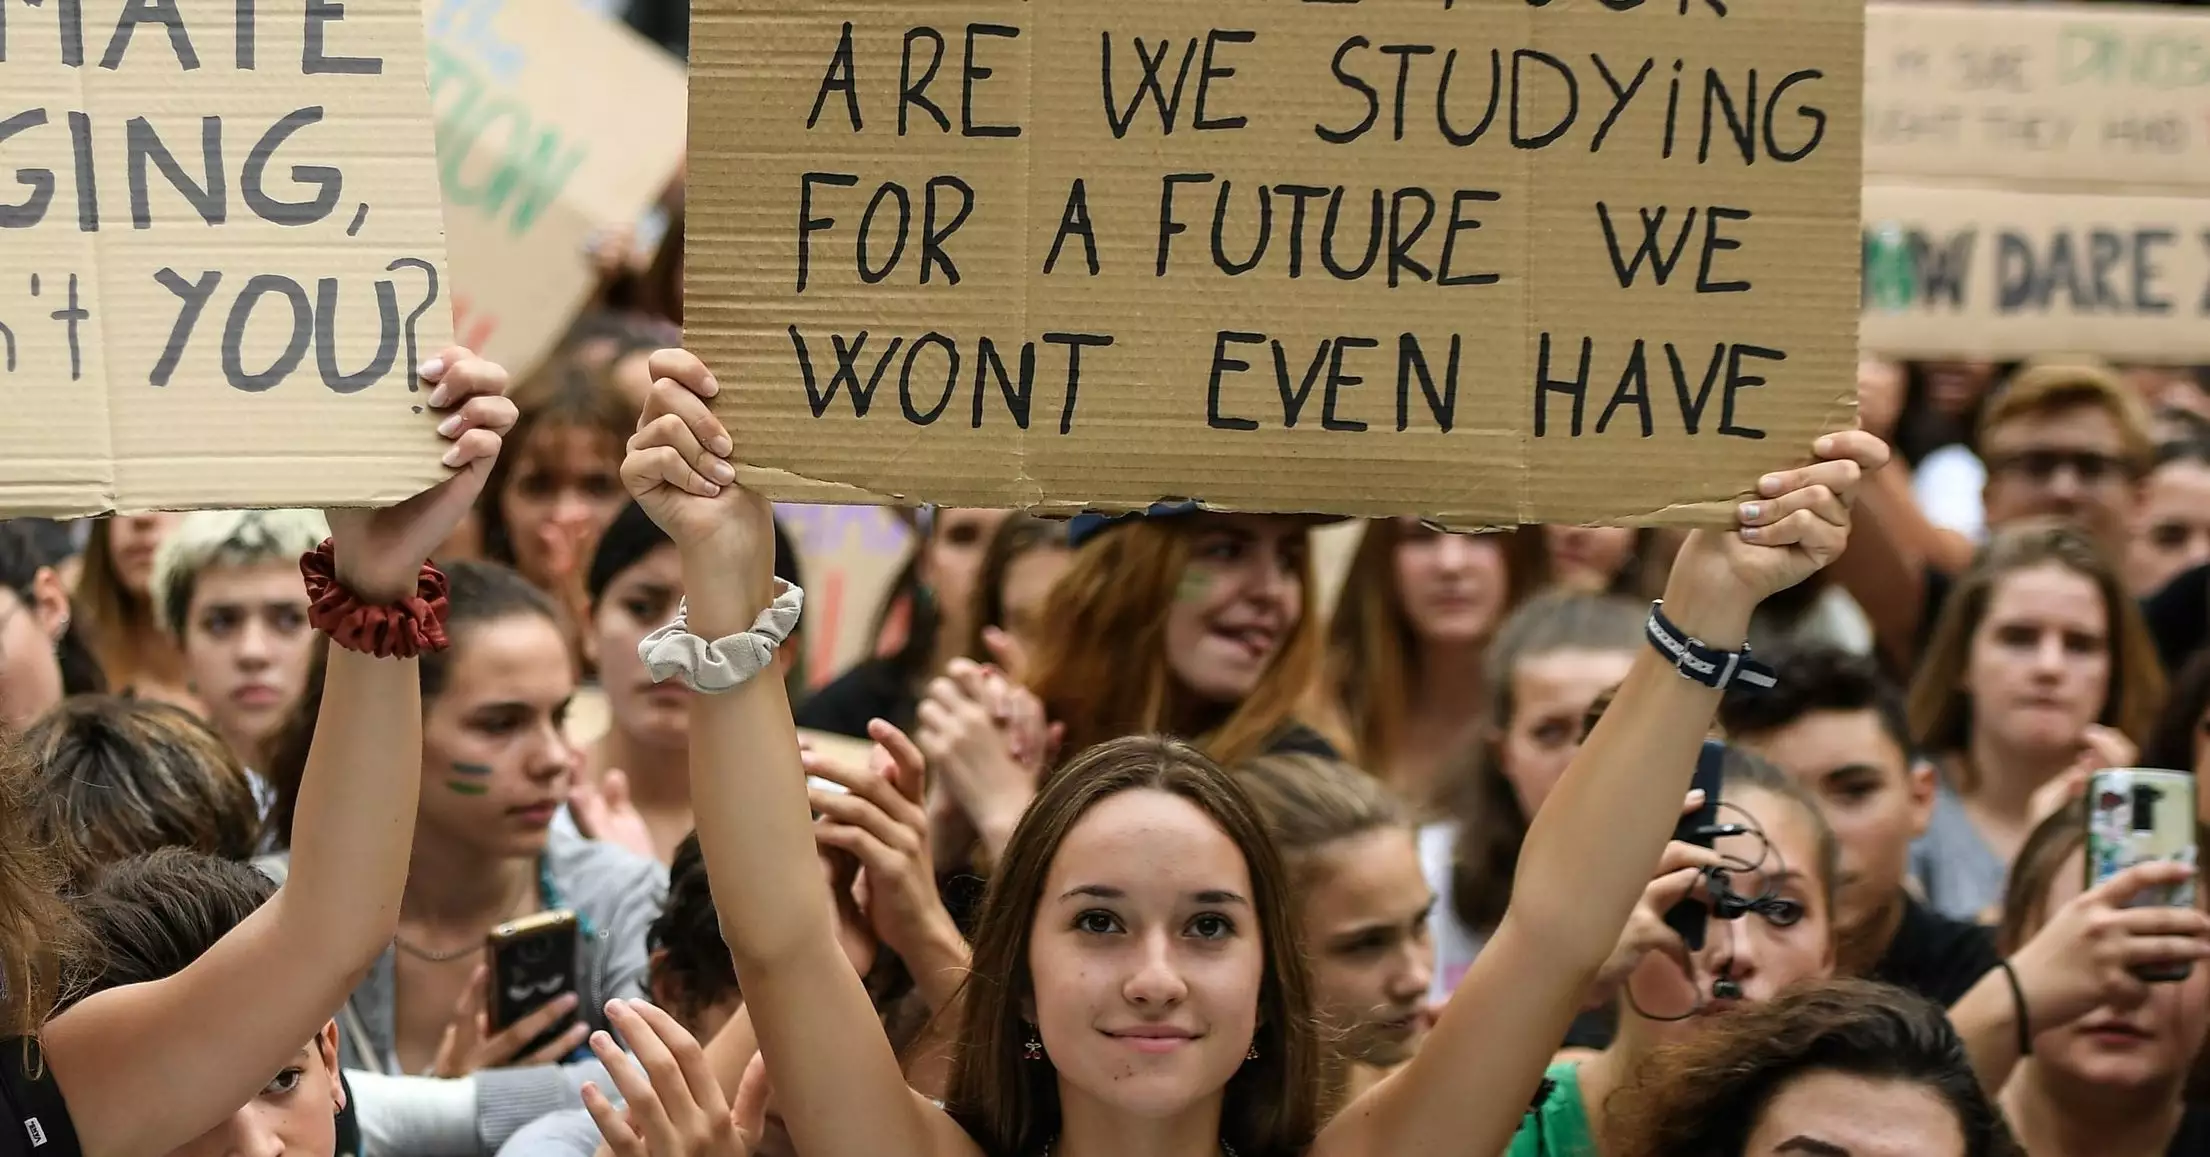 MATE
GING,
n't YOU?
ARE WE STUDYiNG
FOR A FUTURE WE
WONT EVEN HAVE
HOW DARE